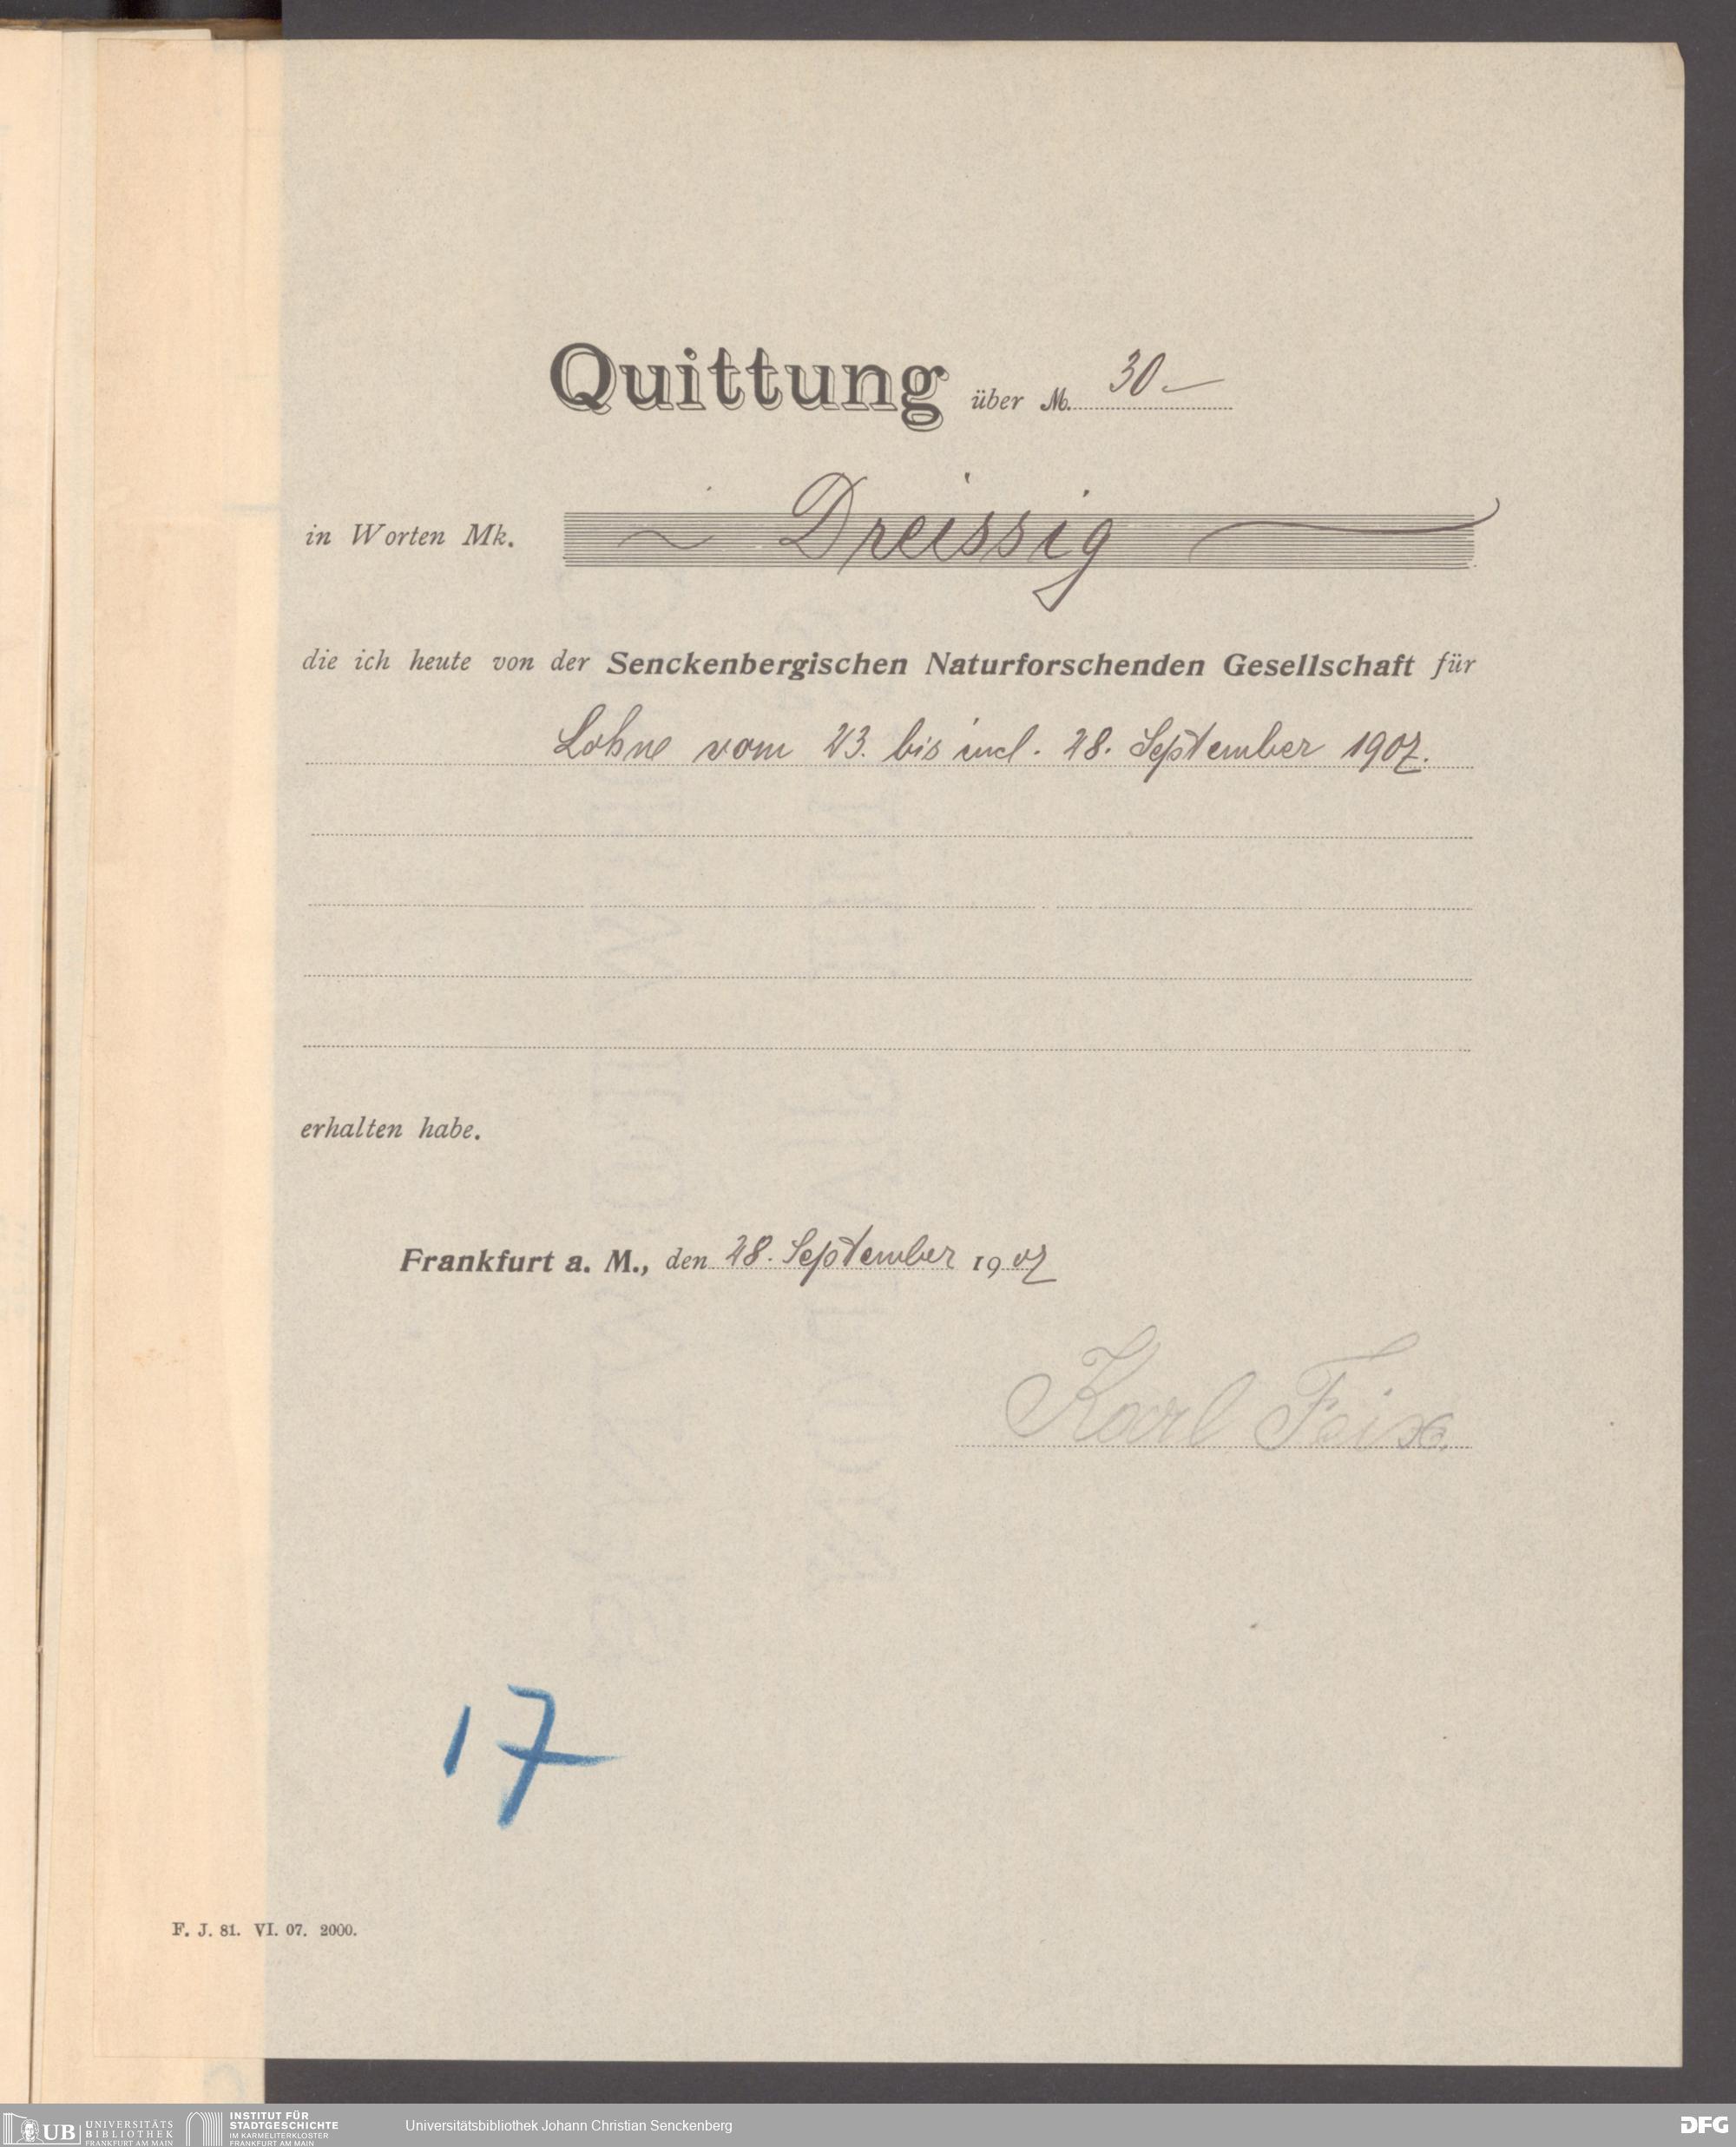 Quittung über M. 30 —
in Worten Mk. ~ Dreissig ~
die ich heute von der Senckenbergischen Naturforschenden Gesellschaft für
Lohne vom 23. bis incl. 28. September 1907.
erhalten habe.
Frankfurt a. M., den 28. September 1907
Karl Feix
17
F. J. 81. VI. 07. 2000.
UB UNIVERSITÄTS BIBLIOTHEK FRANKFURT AM MAIN
INSTITUT FÜR STADTGESCHICHTE IM KARMELITERKLOSTER FRANKFURT AM MAIN
Universitätsbibliothek Johann Christian Senckenberg
DFG